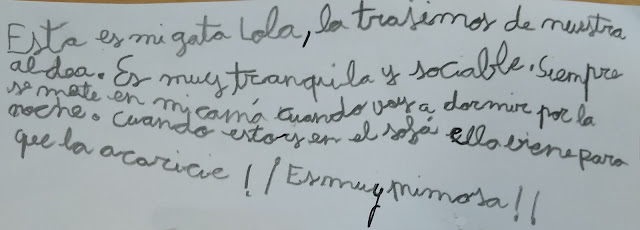 Esta es mi gata Lola, la trasimos de nuestra
aldea. Es muy tranquila y sociable. Siempre
se mete en mi camá cuando voy a dormir por la
noche. Cuando estoy en el sofá ella viene para
que la acaricie! ¡¡Es muy mimosa!!